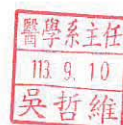 醫學系主任
113. 9. 10
吳哲維